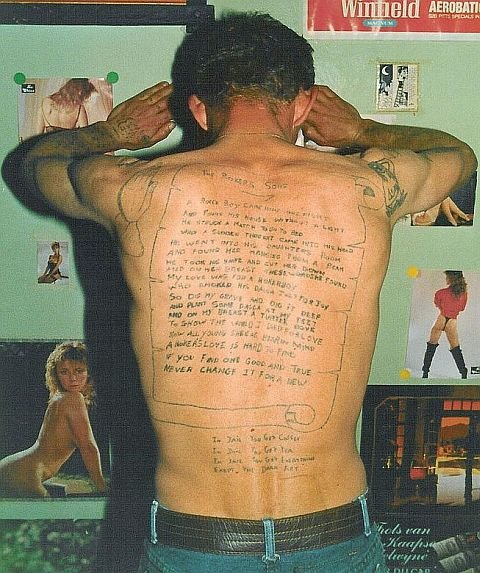 Winfield
MAGNUM
AEROBATI
PITTS SPECIALS
THE ROKER'S SONG
A ROKER BOY CAME HOME ONE NIGHT
AND FOUND HIS HOUSE WITHOUT A LIGHT
HE STRUCK A MATCH TO GO TO BED
WHEN A SUDDEN THOUGHT CAME INTO HIS HEAD
HE WENT INTO HIS DAUGHTERS ROOM
AND FOUND HER HANGING FROM A BEAM
HE TOOK HIS KNIFE AND CUT HER DOWN
AND ON HER BREAST THESE WORDS HE FOUND
MY LOVE WAS FOR A ROKERBOY
WHO SMOKED HIS DAGGA JUST FOR JOY
SO DIG MY GRAVE AND DIG IT DEEP
AND PLANT SOME DAGGA AT MY FEET
AND ON MY BREAST A TURTLE DOVE
TO SHOW THE WORLD I DIED FOR LOVE
NOW ALL YOUNG GIRLS BEAR IN MIND
A ROKERS LOVE IS HARD TO FIND
IF YOU FIND ONE GOOD AND TRUE
NEVER CHANGE IT FOR A NEW
In Jail You Get Coffee
In Jail You Get Tea
In Jail You Get Everything
Except The Key
van
Kaapse